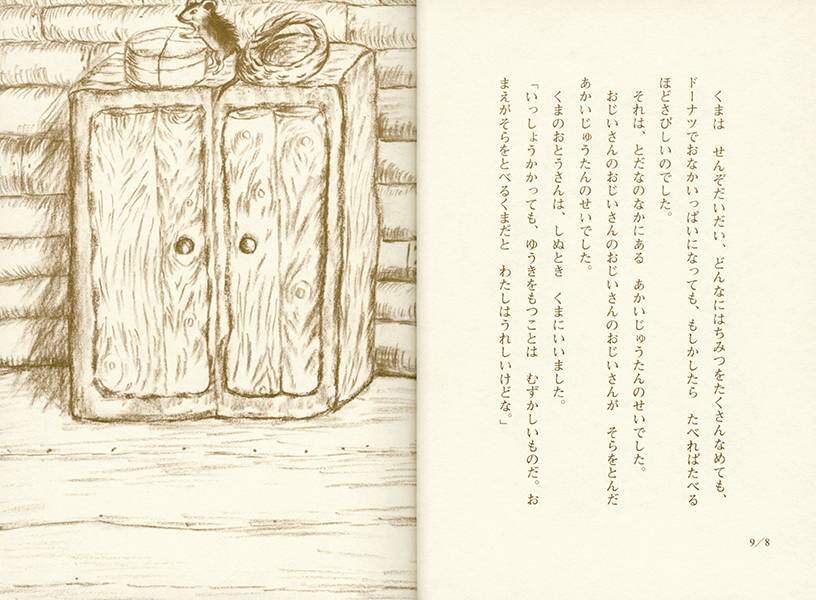 くまは　せんぞだいだい、どんなにはちみつをたくさんなめても、
ドーナツでおなかいっぱいになっても、もしかしたら　たべればたべる
ほどさびしいのでした。
それは、とだなのなかにある　あかいじゅうたんのせいでした。
おじいさんのおじいさんのおじいさんのおじいさんが　そらをとんだ
あかいじゅうたんのせいでした。
くまのおとうさんは、しぬとき　くまにいいました。
「いっしょうかかっても、ゆうきをもつことは　むずかしいものだ。お
まえがそらをとべるくまだと　わたしはうれしいけどな。」
9／8